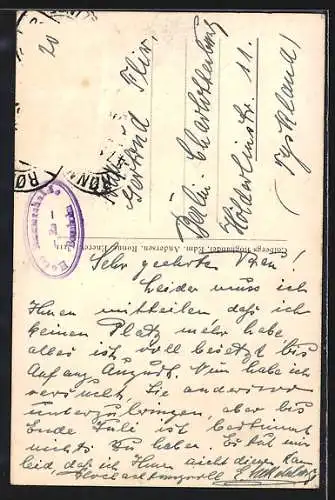 20
RØNN
Gertrud Flir.
Berlin-Charlottenburg
Hölderlinstr. 11.
(Tyskland)
Colbergs Boghandel, Edm. Andersen, Rønne. Eneret.
Sehr geehrtes Fräul.!
Leider muss ich
Ihnen mitteilen daß ich
keinen Platz mehr habe
alles ist voll besetzt bis
Anfang August. Nun habe ich
versucht Sie anderswo
unterzubringen, aber bis
Ende Juli ist bestimmt
nichts zu haben. Es tut mir
leid, daß ich Ihnen nicht dienen kann
Hochachtungsvoll